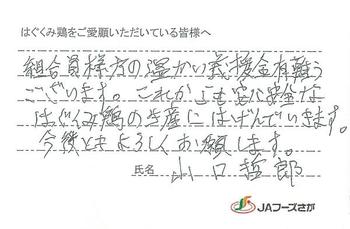 はぐくみ鶏をご愛願いただいている皆様へ
組合員様方の温かい義援金有難う
ございます。これからも安心安全な
はぐくみ鶏の生産にはげんでいきます。
今後ともよろしくお願します。
氏名 山口哲郎
JAフーズさが